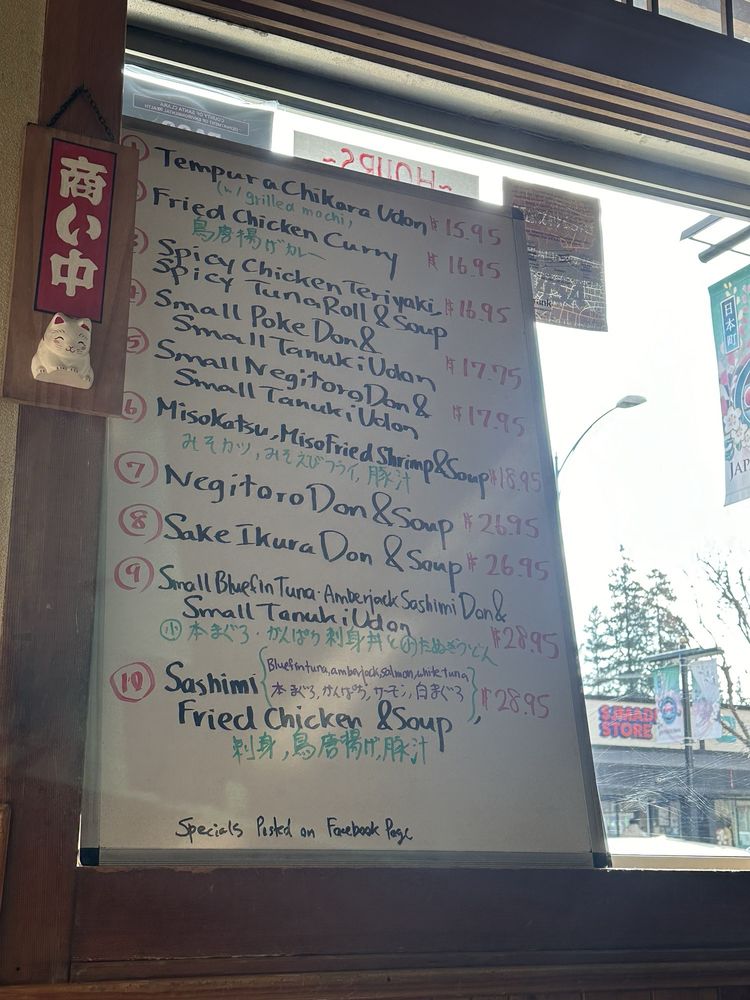 COUNTY OF SANTA CLARA
DEPARTMENT OF ENVIRONMENTAL HEALTH
~HOURS~
商い中
① Tempura Chikara Udon $15.95
(w/ grilled mochi)
② Fried Chicken Curry $16.95
鳥唐揚げカレー
③ Spicy Chicken Teriyaki, $16.95
Spicy Tuna Roll & Soup
④ Small Poke Don & $17.75
Small Tanuki Udon
⑤ Small Negitoro Don & $17.95
Small Tanuki Udon
⑥ Misokatsu, Miso Fried Shrimp & Soup $18.95
みそカツ, みそえびフライ, 豚汁
⑦ Negitoro Don & Soup $26.95
⑧ Sake Ikura Don & Soup $26.95
⑨ Small Bluefin Tuna・Amberjack Sashimi Don &
Small Tanuki Udon $28.95
㊙小 本まぐろ・かんぱち刺身丼と小たぬきうどん
⑩ Sashimi {Bluefin tuna, amberjack, salmon, white tuna
本まぐろ, かんぱち, サーモン, 白まぐろ}, $28.95
Fried Chicken & Soup
刺身, 鳥唐揚げ, 豚汁
Specials Posted on Facebook Page
日本町
JAP
STORE